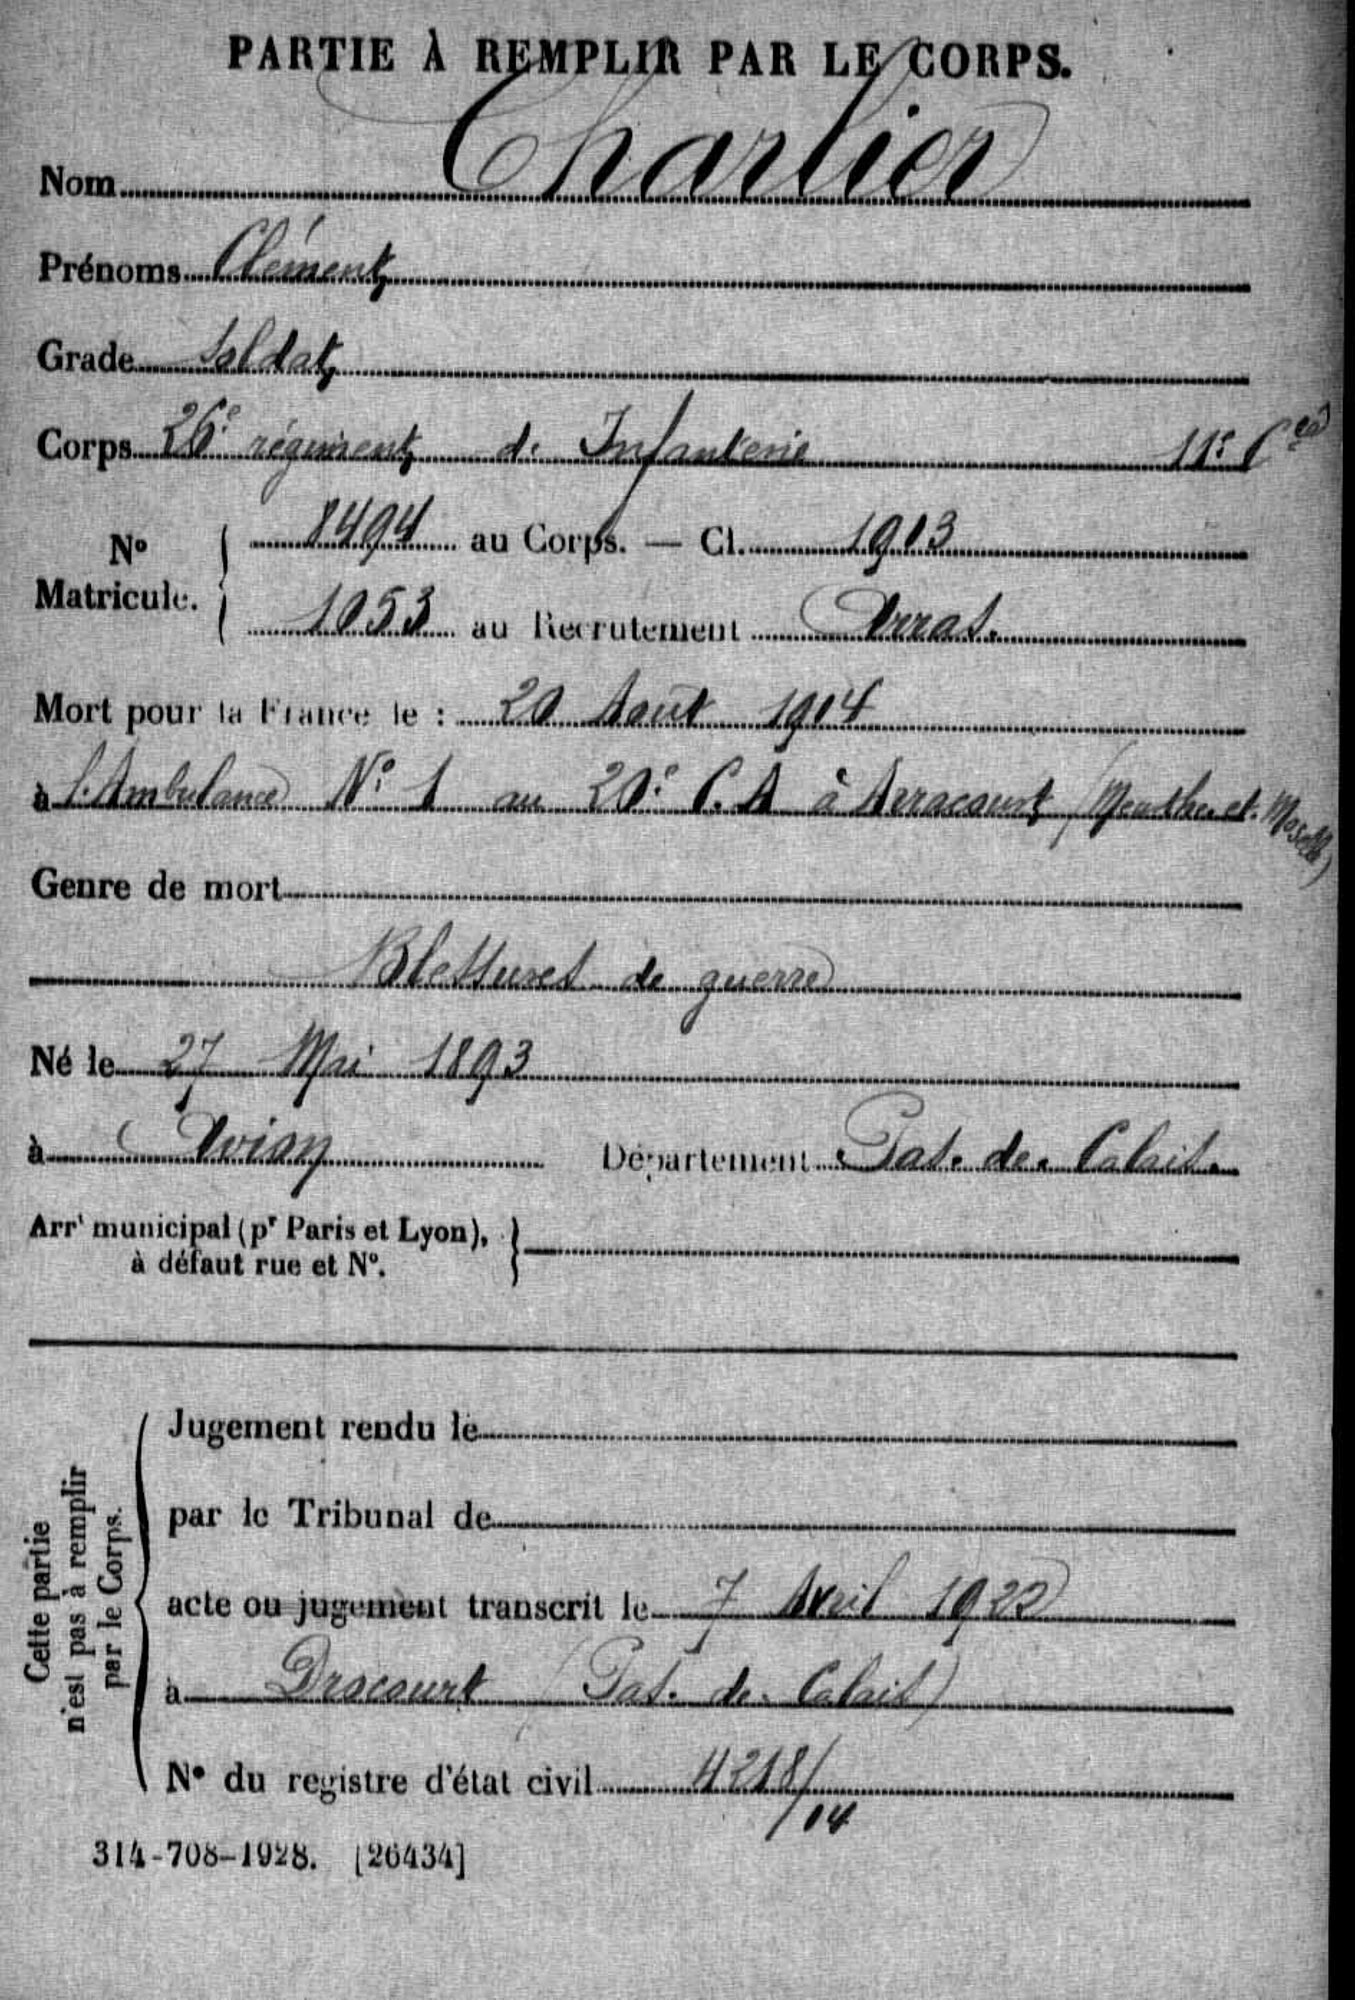 PARTIE À REMPLIR PAR LE CORPS.
Nom Charlier
Prénoms Clément
Grade Soldat
Corps 26e régiment de Infanterie 11e Cie
No Matricule. { 8494 au Corps. — Cl. 1913
1053 au Recrutement Arras.
Mort pour la France le : 20 Août 1914
à l'Ambulance No 1 au 20e C.A à Arracourt (Meurthe-et-Moselle)
Genre de mort
Blessures de guerre
Né le 27 Mai 1893
à Avion Département Pas-de-Calais.
Arrt municipal (pr Paris et Lyon), }
à défaut rue et No.
Cette partie n'est pas à remplir par le Corps.
Jugement rendu le
par le Tribunal de
acte ou jugement transcrit le 7 Avril 1922
à Drocourt (Pas-de-Calais)
No du registre d'état civil 4218/14
314-708-1928. [26434]